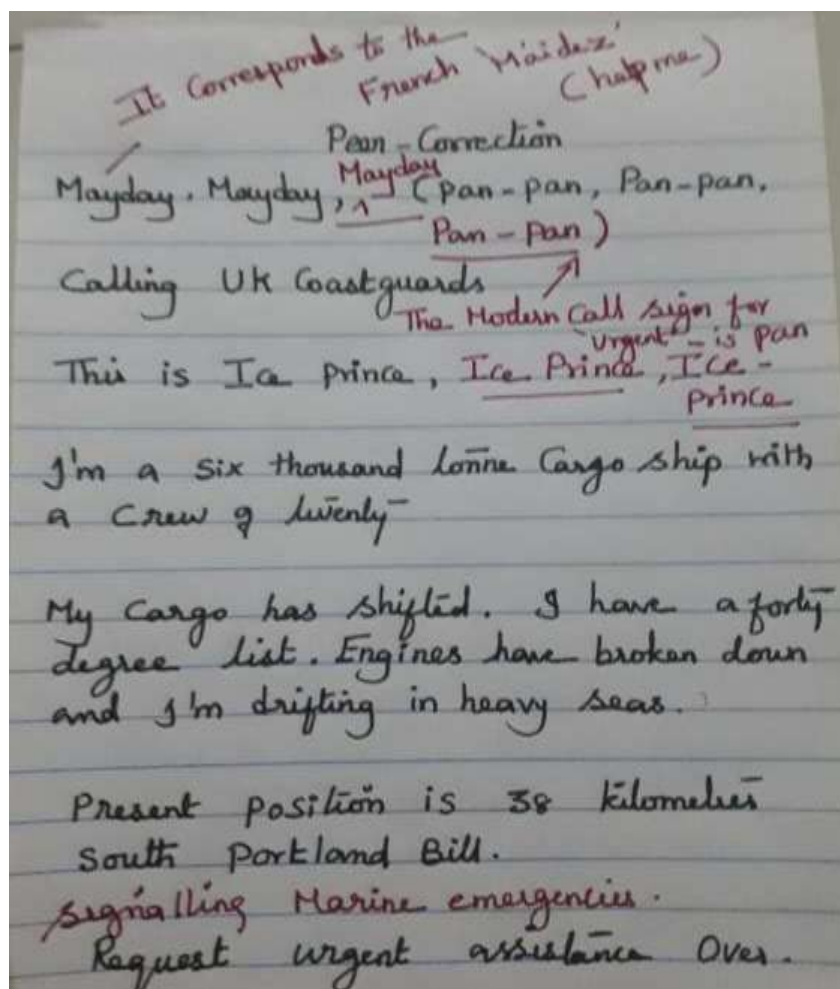 It Corresponds to the
French 'Maidez'
(help me)
Pean-Correction
Mayday, Mayday, Mayday (Pan-pan, Pan-pan,
Pan-Pan)
Calling UK Coastguards
The Modern Call sign for
'Urgent' - is pan
This is Ice prince, Ice Prince, ICe-
prince
I'm a six thousand tonne Cargo ship with
a Crew of twenty
My Cargo has shifted. I have a forty
degree list. Engines have broken down
and I'm drifting in heavy seas.
Present position is 38 kilometres
South Portland Bill.
signalling Marine emergencies.
Request urgent assistance Over.